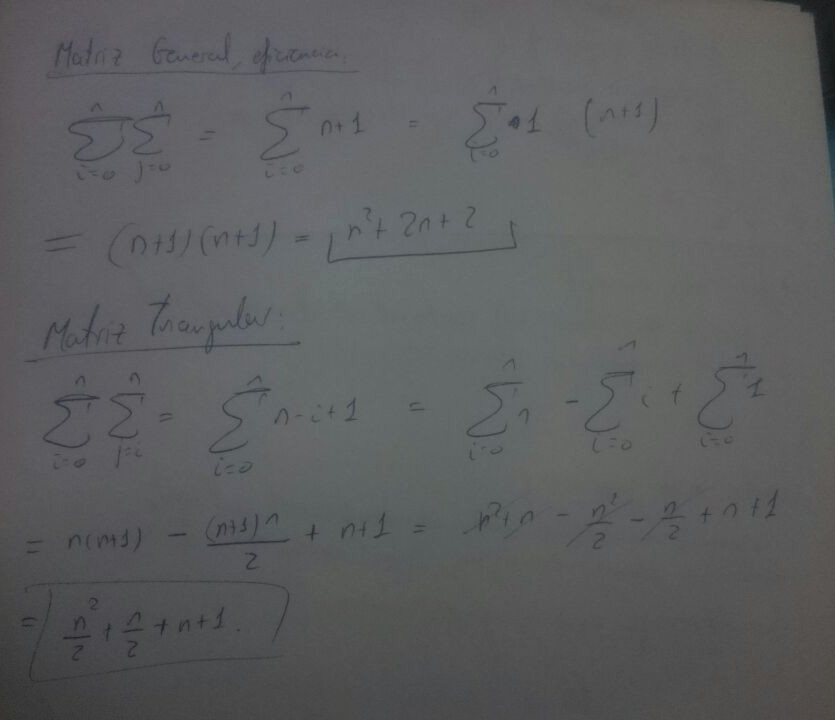 Matriz General, eficiencia.
∑_{i=0}^{n} ∑_{j=0}^{n} = ∑_{i=0}^{n} n+1 = ∑_{i=0}^{n} 1 (n+1)
= (n+1)(n+1) = n²+2n+2
Matriz Triangular:
∑_{i=0}^{n} ∑_{j=i}^{n} = ∑_{i=0}^{n} n-i+1 = ∑_{i=0}^{n} n - ∑_{i=0}^{n} i + ∑_{i=0}^{n} 1
= n(n+1) - (n+1)n/2 + n+1 = n²+n - n²/2 - n/2 + n+1
= n²/2 + n/2 + n+1.